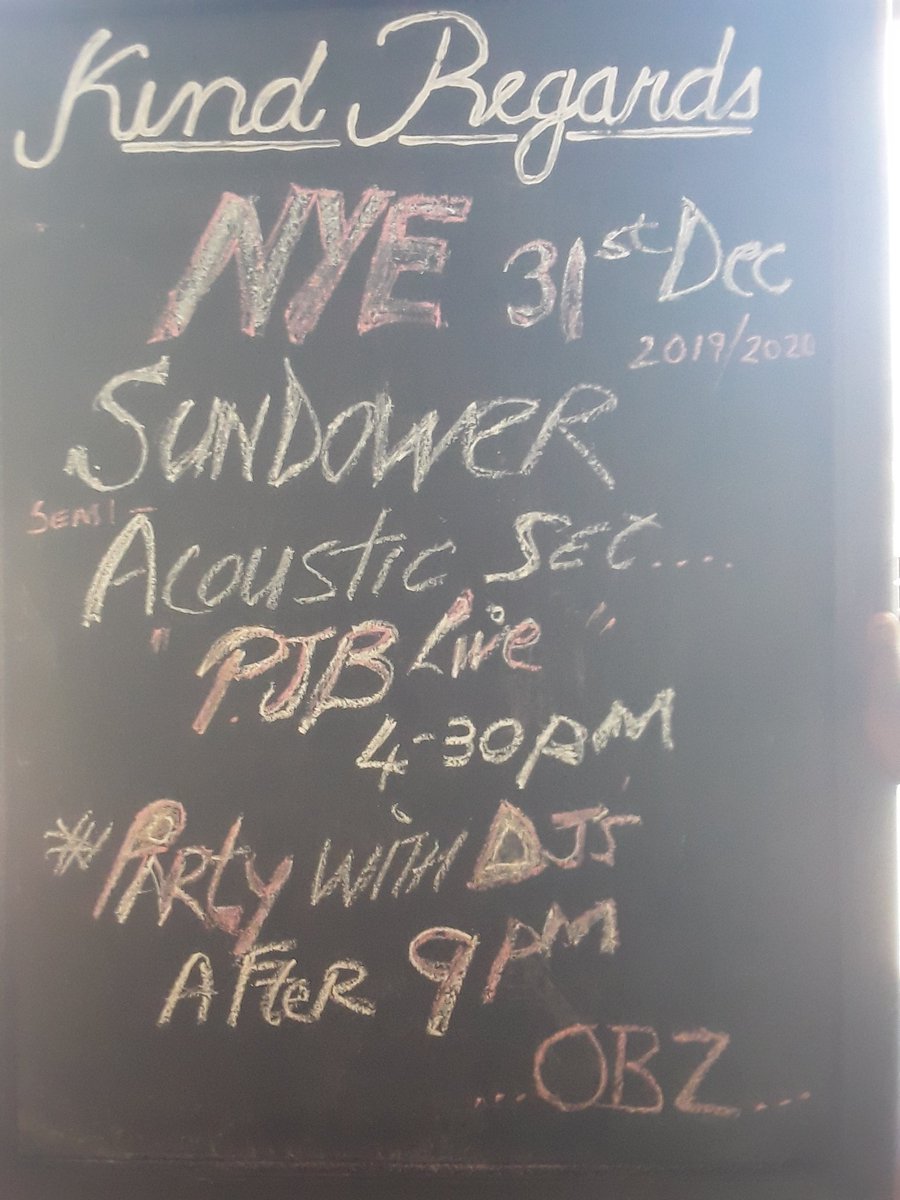 Kind Regards
NYE 31st Dec
2019/2020
SUNDOWER
SEMI-
ACOUSTIC SET....
"PJB Live"
4-30PM
*PARTY WITH DJ's
AFTER 9PM
...OBZ...